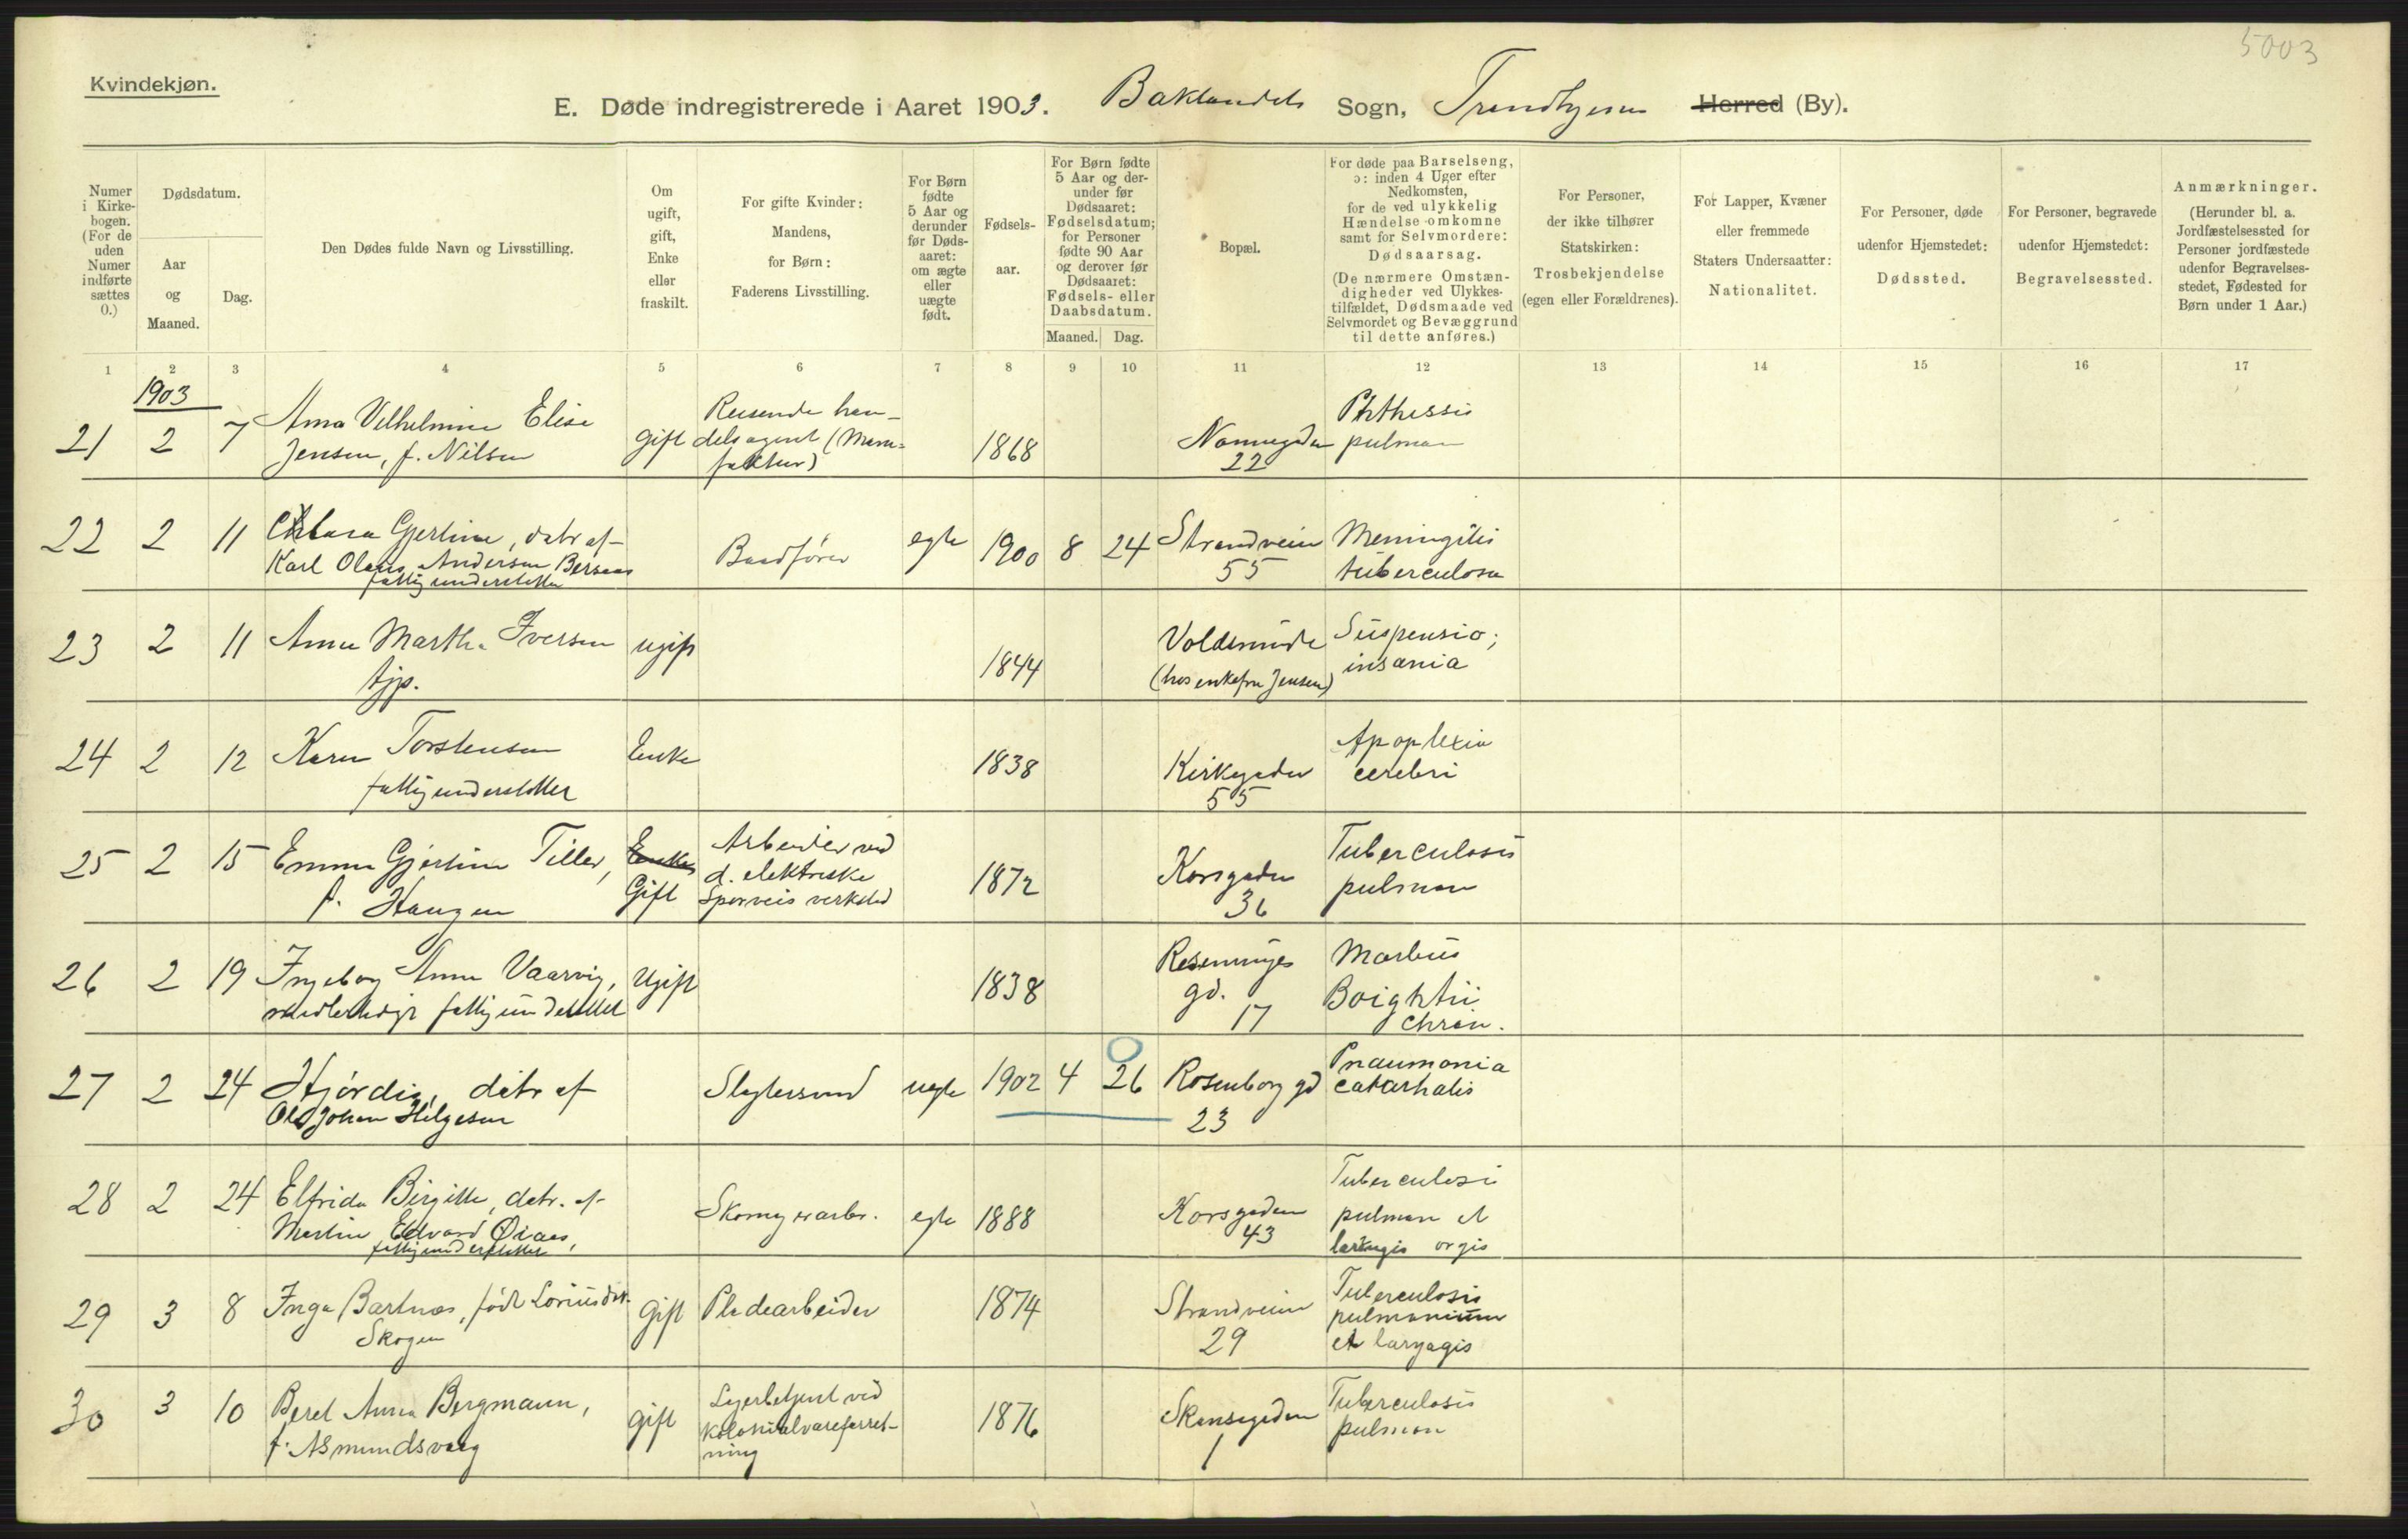 5003
Kvindekjøn.
E. Døde indregistrerede i Aaret 1903. Baklandets Sogn, Trondhjem Herred (By).
Numer i Kirkebogen. (For de uden Numer indførte sættes 0.)
Dødsdatum.
Aar og Maaned.
Dag.
Den Dødes fulde Navn og Livsstilling.
Om ugift, gift, Enke eller fraskilt.
For gifte Kvinder: Mandens, for Børn: Faderens Livsstilling.
For Børn fødte 5 Aar og derunder før Dødsaaret: om ægte eller uægte født.
Fødselsaar.
For Børn fødte 5 Aar og derunder før Dødsaaret: Fødselsdatum; for Personer fødte 90 Aar og derover før Dødsaaret: Fødsels- eller Daabsdatum.
Maaned. Dag.
Bopæl.
For døde paa Barselseng, ɔ: inden 4 Uger efter Nedkomsten, for de ved ulykkelig Hændelse omkomne samt for Selvmordere: Dødsaarsag. (De nærmere Omstændigheder ved Ulykkestilfældet, Dødsmaade ved Selvmordet og Bevæggrund til dette anføres.)
For Personer, der ikke tilhører Statskirken: Trosbekjendelse (egen eller Forældrenes).
For Lapper, Kvæner eller fremmede Staters Undersaatter: Nationalitet.
For Personer, døde udenfor Hjemstedet: Dødssted.
For Personer, begravede udenfor Hjemstedet: Begravelsessted.
Anmærkninger. (Herunder bl. a. Jordfæstelsessted for Personer jordfæstede udenfor Begravelsesstedet, Fødested for Børn under 1 Aar.)
1 2 3 4 5 6 7 8 9 10 11 12 13 14 15 16 17
1903
21 2 7 Anna Vilhelmine Elise Jensen, f. Nilsen gift Reisende handelsagent (Manufaktur) 1868 Nonnegaden 22 Phthissis pulmon
22 2 11 Klara Gjertine, datr af Karl Olaus Andersen Bersaas fattigunderstøttet Baadfører egte 1900 8 24 Strandveien 55 Meningitis tuberculosa
23 2 11 Anne Martha Iversen tjp. ugift 1844 Voldsminde (hos enkefru Jensen) Suspensio; insania
24 2 12 Karen Torstensen fattigunderstøttet Enke 1838 Kirkegaden 55 Apoplexia cerebri
25 2 15 Emma Gjertine Tiller, f. Haugen Enke Gift Arbeider ved d. elektriske Sporveis verksted 1872 Korsgaden 36 Tuberculosis pulmon
26 2 19 Ingeborg Anne Vaarvig, fattigunderstøttet Ugift 1838 gd. 17 Morbus Brightii chron.
27 2 24 Hjørdis, datr af Ole Johan Helgesen Slagtersvend uegte 1902 4 26 Rosenborg gd 23 Pnaumonia catarhalis
28 2 24 Elfrida Birgitte, datr. af Martin Edvard Øiaas, fattigunderstøttet Skomagerarbr. egte 1888 Korsgaden 43 Tuberculosis pulmon et
29 3 8 Inga Bartnæs, født Skogen Gift Pladearbeider 1874 Strandveien 29 Tuberculosis pulmonium et laryngis
30 3 10 Beret Anna Bergmann, f. Asmundsvaag gift Lagerbetjent ved kolonialvareforretning 1876 Skansegaden 1 Tuberculosis pulmon